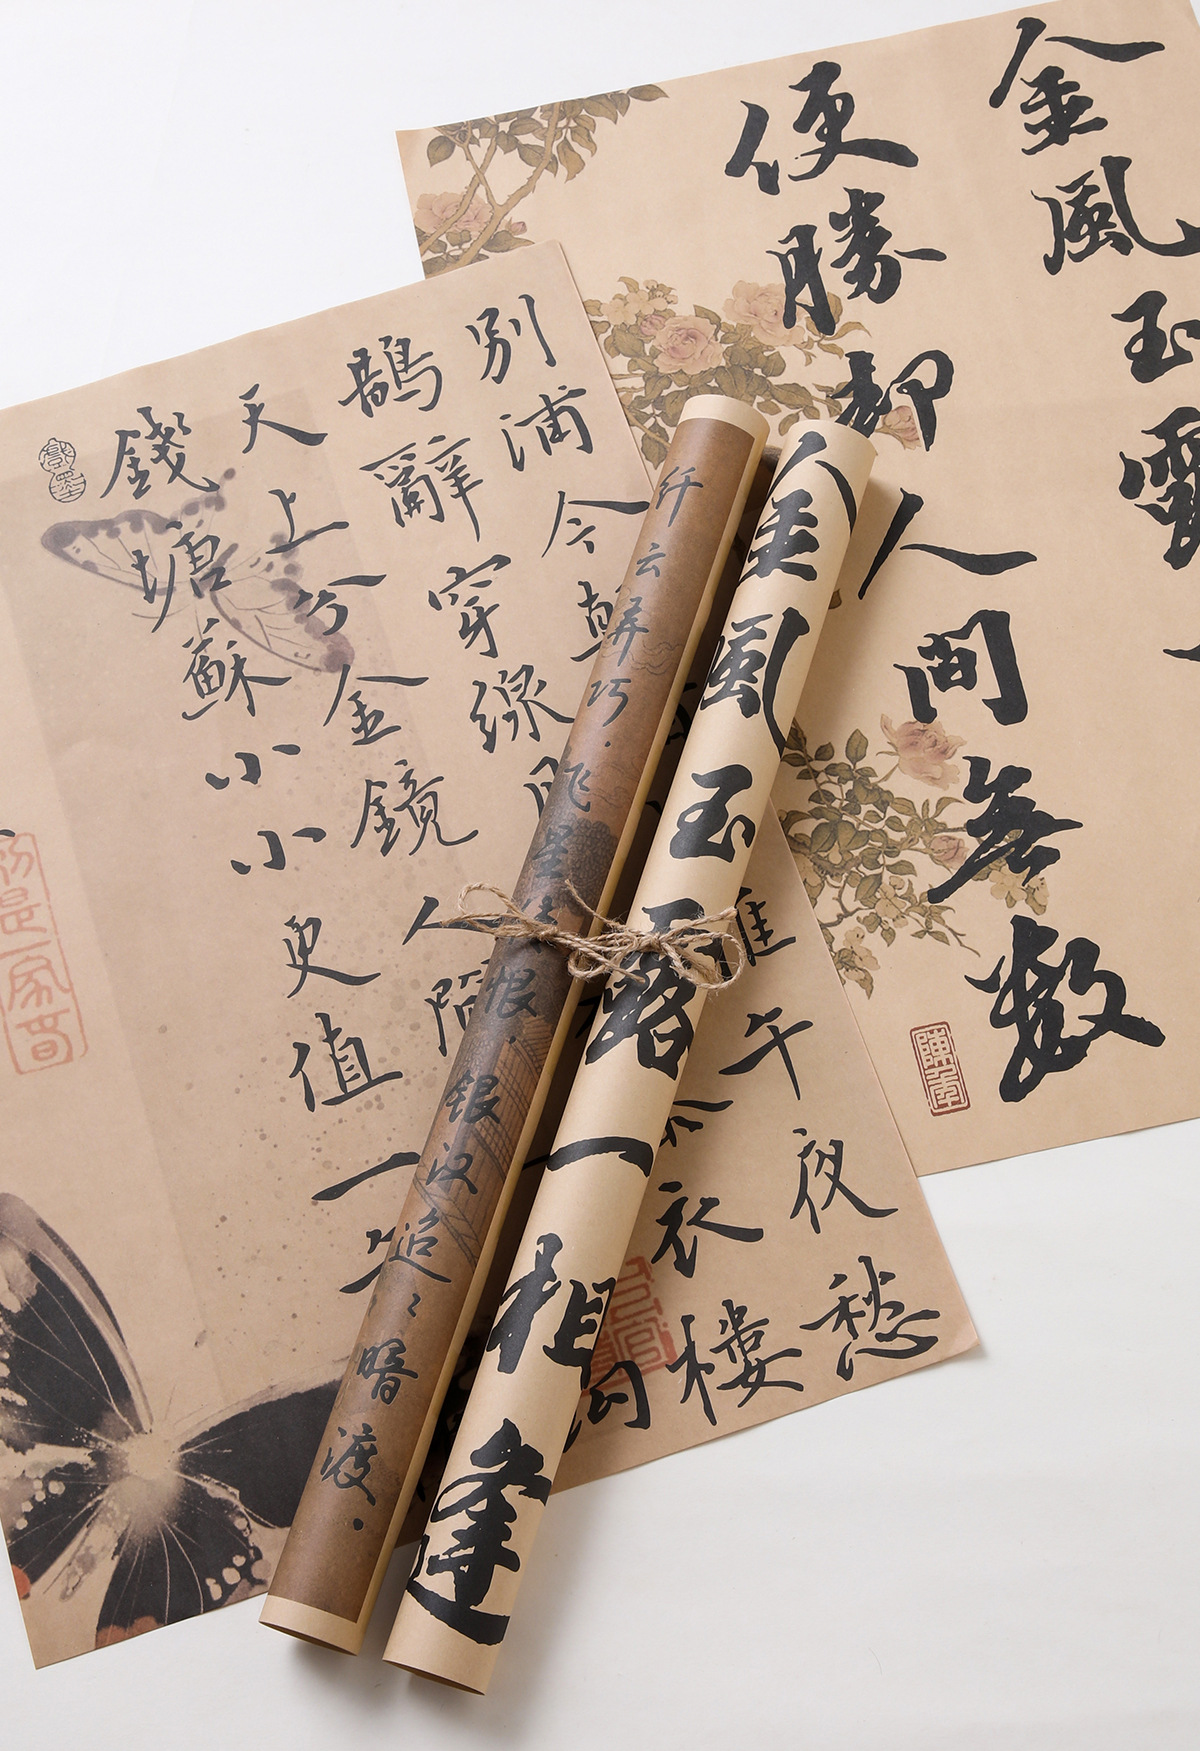 金風玉露一
便勝卻人間無數
別浦今朝
午夜愁
鵲辭穿線月
衣樓
天上分金鏡人間
錢塘蘇小小更值一
纤云弄巧．飞星传恨．银汉迢〻暗渡．
金風玉露一相逢